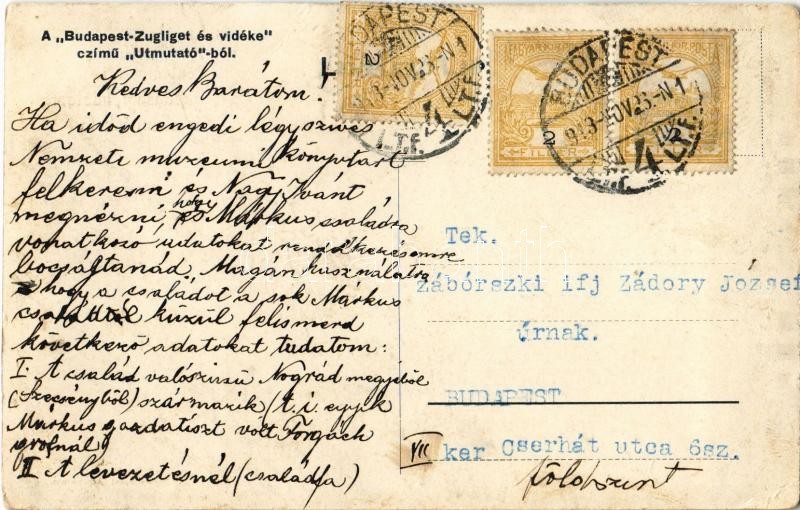 A „Budapest-Zugliget és vidéke"
czímű „Utmutató"-ból.
Kedves Barátom!
Ha időd engedi légy szives
Nemzeti muzeumi könyvtárt
felkeresni és Nagy Ivánt
megnézni hogy és Márkus családra
vonatkozó adatokat rendelkezésemre
bocsáltanád. Magán használatra
hogy a családot a sok Márkus
család közül felismerd
következő adatokat tudatom:
I. A család valószinű Nográd megyéből
(Szécsényből) származik (t. i. egyik
Márkus gazdatiszt volt Forgách
grófnál)
II A levezetésnél (családfa)
BUDAPEST
913 NOV 23-N 1
4
I.T.F.
BUDAPEST
913 NOV 23-N 1
4
I.T.F.
MAGYAR KIR. POSTA
2
FILLÉR
Tek.
Zábórszki ifj Zádory József
úrnak.
BUDAPEST
VII ker Cserhát utca 6sz.
földszint